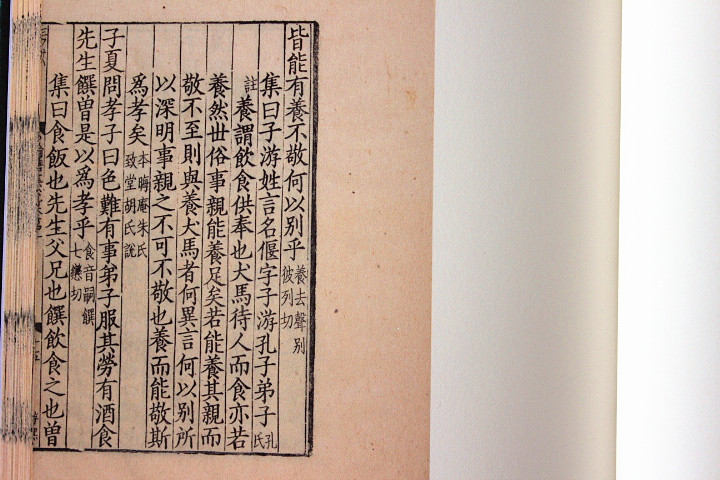 皆能有養不敬何以別乎養去聲別彼列切
集曰子游姓言名偃字子游孔子弟子孔氏
註養謂飲食供奉也犬馬待人而食亦若
養然世俗事親能養足矣若能養其親而
敬不至則與養犬馬者何異言何以別所
以深明事親之不可不敬也養而能敬斯
爲孝矣本晦庵朱氏致堂胡氏說
子夏問孝子曰色難有事弟子服其勞有酒食
先生饌曾是以爲孝乎食音嗣饌七戀切
集曰食飯也先生父兄也饌飲食之也曾